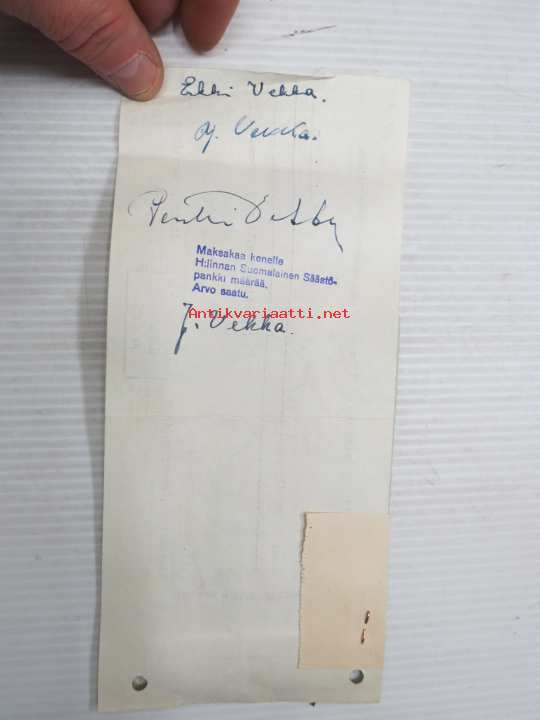 Erkki Vekka.
Y. Vekka.
Pentti
Maksakaa kenelle
H:linnan Suomalainen Säästö-
pankki määrää.
Arvo saatu.
Antikvariaatti.net
J. Vekka.